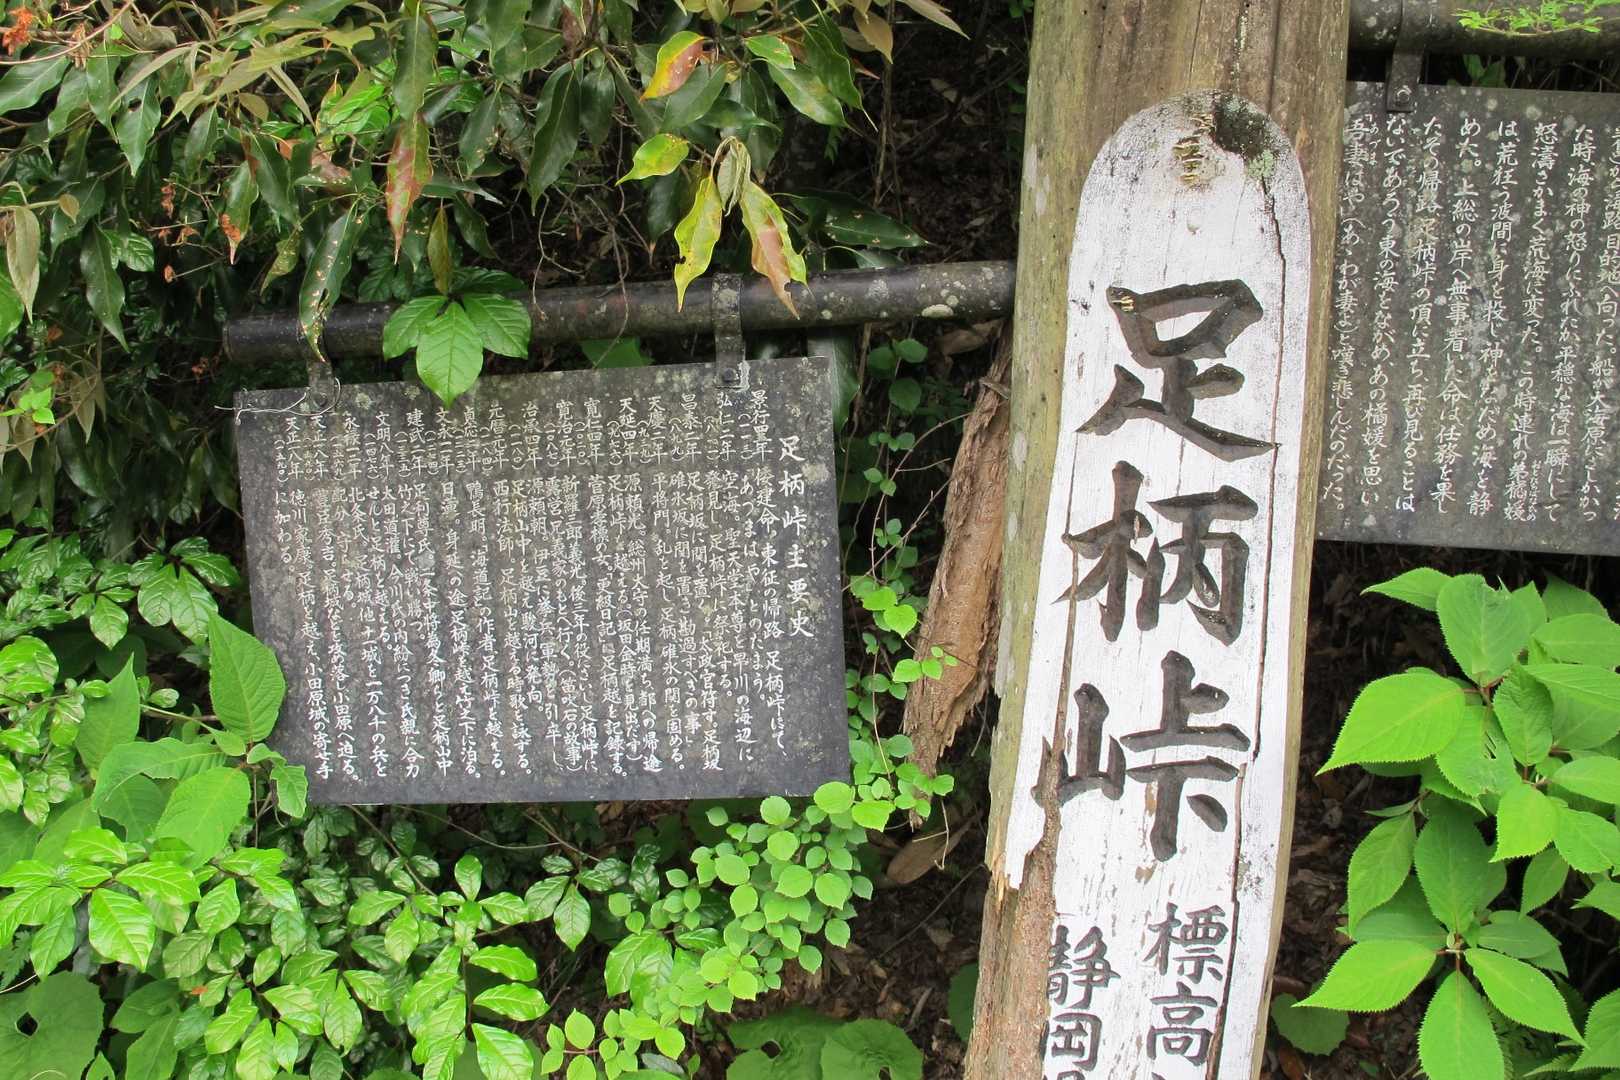 足柄峠
標高
静岡
た時、海の神の怒りにふれたか平穏な海は一瞬にして
怒濤さかまく荒海に変った。この時連れの弟橘媛
は荒狂う波間に身を投じ神をなだめ海を静
めた。上総の岸へ無事着いた命は任務を果し
たその帰路足柄峠の頂に立ち再び見ることは
ないであろう東の海をながめ、あの橘媛を思い
吾妻はや(あゝわが妻よ)と嘆き悲しんだのだった。
足柄峠主要史
景行四十年 倭建命・東征の帰路 足柄峠にて、
「あづまはや」とのたまう
弘仁二年 空海。聖天堂本尊を早川の海辺に
発見し、足柄峠に祭祀する。
昌泰二年 足柄坂に関を置く。「太政官符す。足柄坂
碓氷坂に関を置き、勘過すべきの事」
天慶二年 平将門、乱を起し、足柄碓氷の関を固める。
天延四年 源頼光。総州大守の任期満ち、都への帰途
足柄峠を越える(坂田金時を見出だす)
寛仁四年 菅原孝標の女。更級日記に足柄越を記録する。
寛治元年 新羅三郎義光、後三年の役にさいし、足柄峠に
治承四年 源頼朝。伊豆に挙兵、軍勢を引率し、
足柄山中を越え駿河へ発向。
元暦元年 西行法師。足柄山を越える時歌を詠する。
貞応二年 鴨長明。海道記の作者、足柄峠を越える。
文永十一年 日蓮。身延への途、足柄峠を越え竹之下に泊る。
建武二年 足利尊氏、二条中将為冬卿らと足柄山中
竹之下にて戦い勝つ。
文明八年 太田道灌、今川氏の内紛につき氏親に合力
せんと足柄を越える。
永禄十二年 北条氏、足柄城他十城を一万八千の兵を
配分し守らせる。
天正十八年 豊臣秀吉。足柄城などを攻め落し小田原へ迫る。
天正十八年 徳川家康。足柄を越え、小田原城の寄せ手
に加わる。